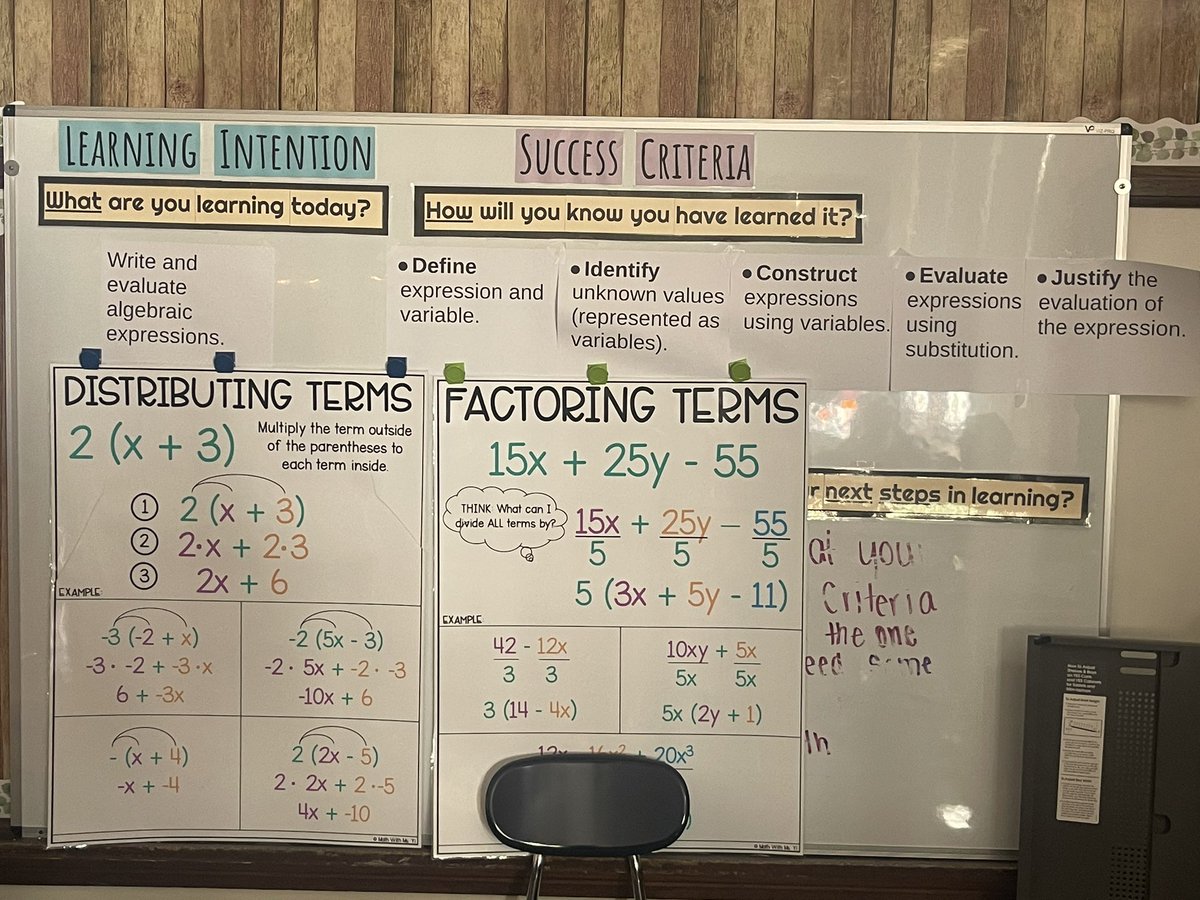 LEARNING INTENTION
What are you learning today?
Write and
evaluate
algebraic
expressions.
SUCCESS CRITERIA
How will you know you have learned it?
• Define
expression and
variable.
• Identify
unknown values
(represented as
variables).
• Construct
expressions
using variables.
• Evaluate
expressions
using
substitution.
• Justify the
evaluation of
the expression.
DISTRIBUTING TERMS
2 (x + 3)
Multiply the term outside
of the parentheses to
each term inside.
1 2 (x + 3)
2 2·x + 2·3
3 2x + 6
EXAMPLE:
-3 (-2 + x)
-3· -2 + -3·x
6 + -3x
-2 (5x - 3)
-2· 5x + -2 · -3
-10x + 6
- (x + 4)
-x + -4
2 (2x - 5)
2 · 2x + 2 ·-5
4x + -10
© Math With Ms. Yi
FACTORING TERMS
15x + 25y - 55
THINK: What can I
divide ALL terms by?
15x + 25y - 55
5 5 5
5 (3x + 5y - 11)
EXAMPLE:
42 - 12x
3 3
3 (14 - 4x)
10xy + 5x
5x 5x
5x (2y + 1)
+ 20x³
© Math With Ms. Yi
next steps in learning?
you
Criteria
the one
some